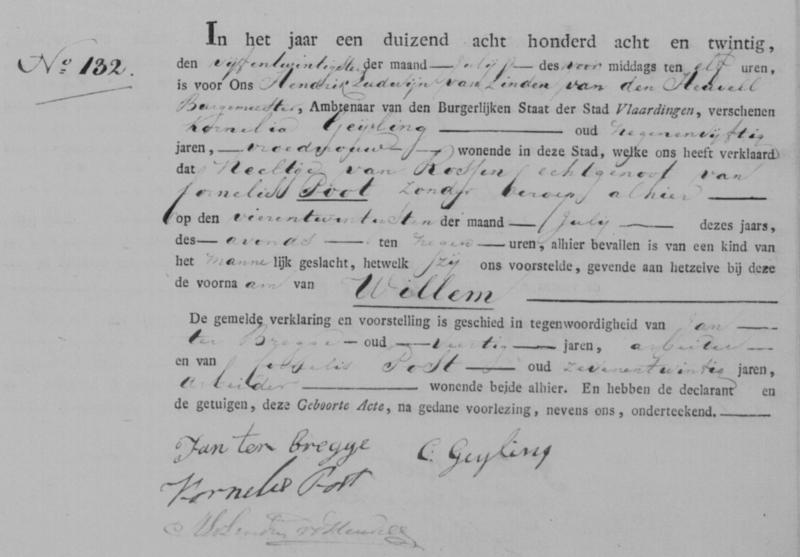 In het jaar een duizend acht honderd acht en twintig,
No 132.
den vyfentwintigsten der maand July des voor middags ten elf uren,
is voor Ons Hendrik Ludwijn van Linden van den Heuvell
Burgemeester, Ambtenaar van den Burgerlijken Staat der Stad Vlaardingen, verschenen
Kornelia Geyling oud Negenenvyftig
jaren, vroedvrouw wonende in deze Stad, welke ons heeft verklaard
dat Neeltge van Rossen echtgenoot van
Cornelis Poot zonder beroep alhier
op den vierentwintigsten der maand July dezes jaars,
des avonds ten negen uren, alhier bevallen is van een kind van
het mannelijk geslacht, hetwelk zy ons voorstelde, gevende aan hetzelve bij deze
de voornaam van Willem
De gemelde verklaring en voorstelling is geschied in tegenwoordigheid van Jan
ter Bregge oud veertig jaren, arbeider
en van Cornelis Post oud zevenentwintig jaren,
arbeider wonende beide alhier. En hebben de declarant en
de getuigen, deze Geboorte Acte, na gedane voorlezing, nevens ons, onderteekend.
Jan ter bregge C. Geyling
Kornelis Post